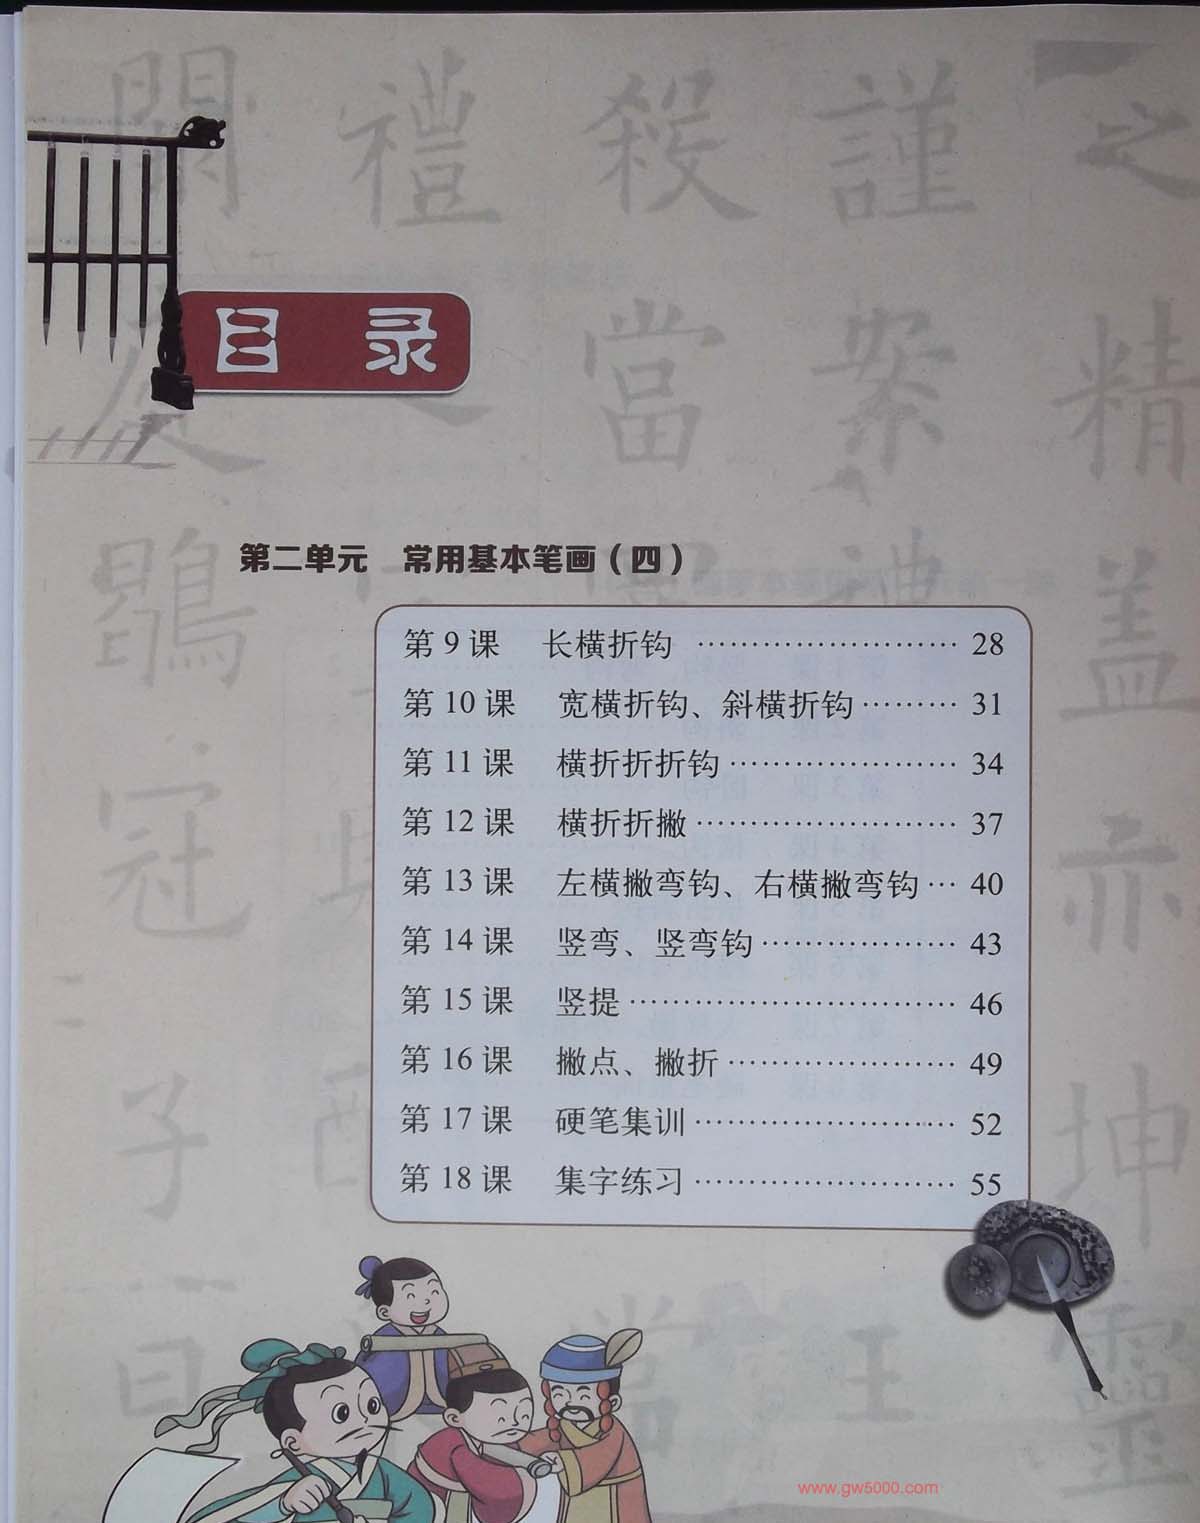 目 录
第二单元 常用基本笔画（四）
第 9 课 长横折钩 …………………… 28
第 10 课 宽横折钩、斜横折钩 ……… 31
第 11 课 横折折折钩 ………………… 34
第 12 课 横折折撇 …………………… 37
第 13 课 左横撇弯钩、右横撇弯钩 … 40
第 14 课 竖弯、竖弯钩 ……………… 43
第 15 课 竖提 ………………………… 46
第 16 课 撇点、撇折 ………………… 49
第 17 课 硬笔集训 …………………… 52
第 18 课 集字练习 …………………… 55
www.gw5000.com